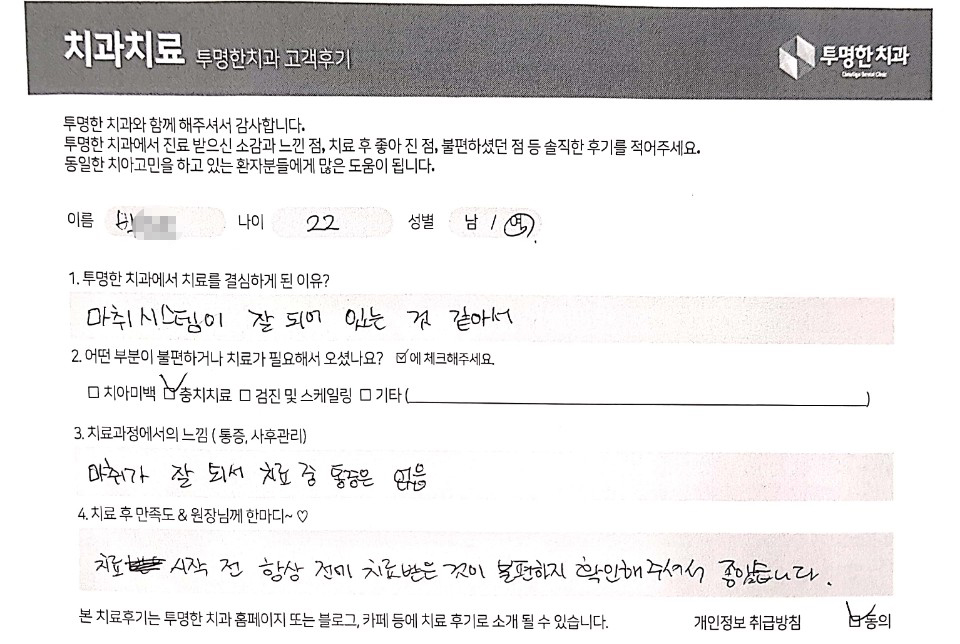 치과치료 투명한치과 고객후기
투명한치과
투명한 치과와 함께 해주셔서 감사합니다.
투명한 치과에서 진료 받으신 소감과 느낀 점, 치료 후 좋아 진 점, 불편하셨던 점 등 솔직한 후기를 적어주세요.
동일한 치아고민을 하고 있는 환자분들에게 많은 도움이 됩니다.
이름 나이 22 성별 남 / 여
1. 투명한 치과에서 치료를 결심하게 된 이유?
마취시스템이 잘 되어 있는 것 같아서
2. 어떤 부분이 불편하거나 치료가 필요해서 오셨나요? ☑에 체크해주세요.
☐ 치아미백 ☑ 충치치료 ☐ 검진 및 스케일링 ☐ 기타 ( )
3. 치료과정에서의 느낌 ( 통증, 사후관리)
마취가 잘 되서 치료 중 통증은 없음
4. 치료 후 만족도 & 원장님께 한마디~ ♡
치료 시작 전 항상 전에 치료받은 것이 불편하지 확인해주셔서 좋았습니다.
본 치료후기는 투명한 치과 홈페이지 또는 블로그, 카페 등에 치료 후기로 소개 될 수 있습니다. 개인정보 취급방침 ☑동의